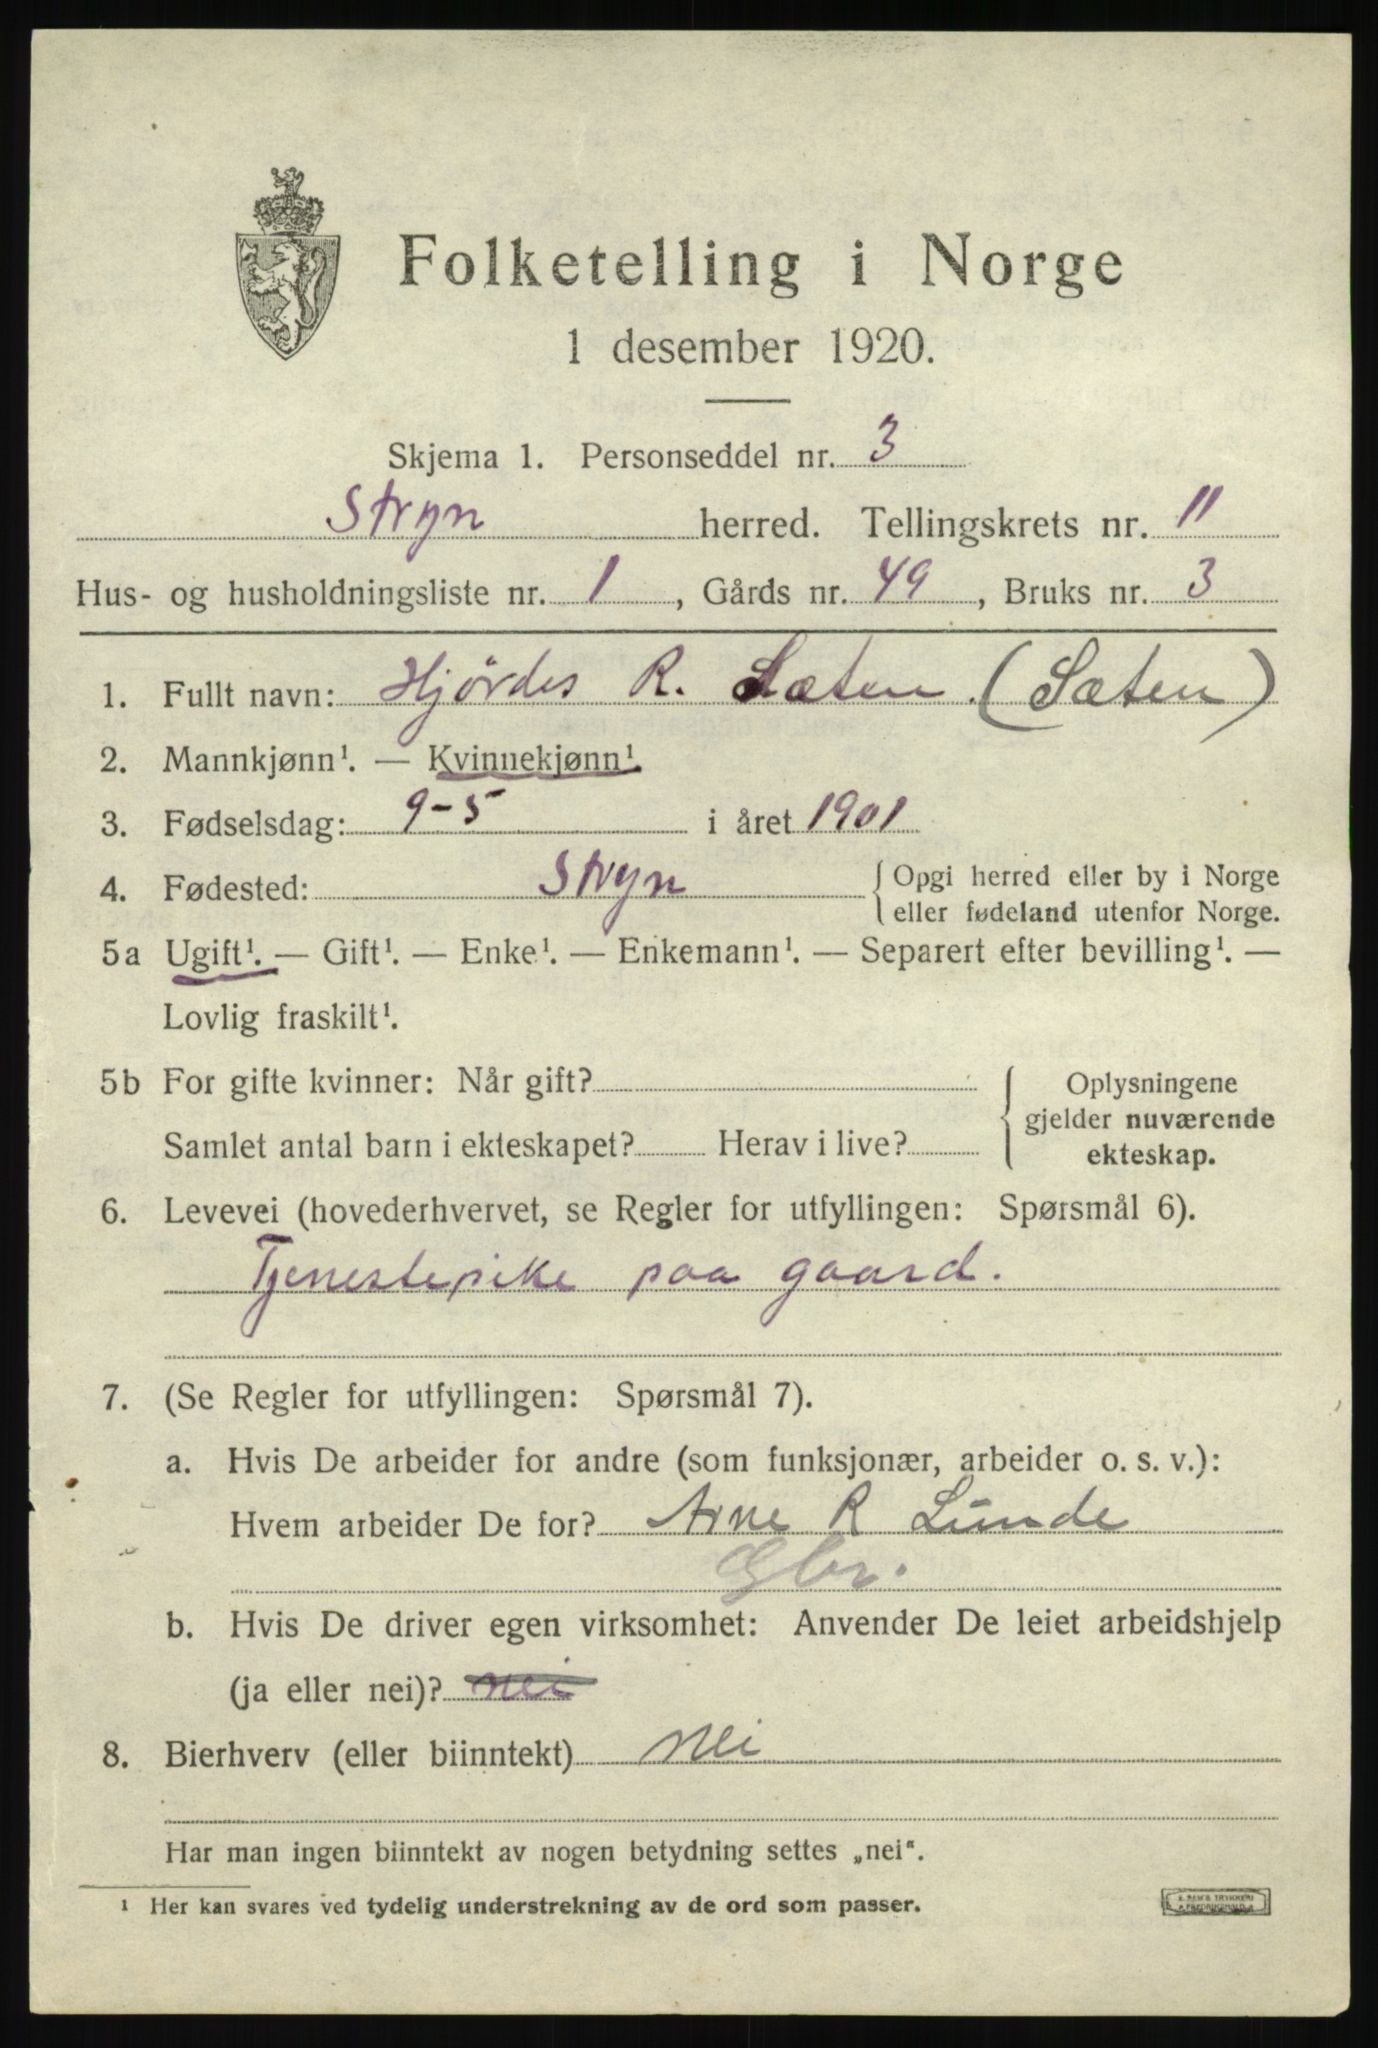 Folketelling i Norge
1 desember 1920.
Skjema 1. Personseddel nr. 3
Stryn herred. Tellingskrets nr. 11
Hus- og husholdningsliste nr. 1, Gårds nr. 49, Bruks nr. 3
1. Fullt navn: Hjördes R. Sæten (Sæten)
2. Mannkjønn¹. — Kvinnekjønn¹.
3. Fødselsdag: 9-5 i året 1901
4. Fødested: Stryn { Opgi herred eller by i Norge
eller fødeland utenfor Norge.
5a Ugift¹. — Gift¹. — Enke¹. — Enkemann¹. — Separert efter bevilling¹. —
Lovlig fraskilt¹.
5b For gifte kvinner: Når gift? { Oplysningene
gjelder nuværende
Samlet antal barn i ekteskapet? Herav i live?
ekteskap.
6. Levevei (hovederhvervet, se Regler for utfyllingen: Spørsmål 6).
Tjenestepike paa gaard.
7. (Se Regler for utfyllingen: Spørsmål 7).
a. Hvis De arbeider for andre (som funksjonær, arbeider o. s. v.):
Hvem arbeider De for? Arne R Lunde
Gbr.
b. Hvis De driver egen virksomhet: Anvender De leiet arbeidshjelp
(ja eller nei)? nei
8. Bierhverv (eller biinntekt) nei
Har man ingen biinntekt av nogen betydning settes „nei“.
¹ Her kan svares ved tydelig understrekning av de ord som passer.